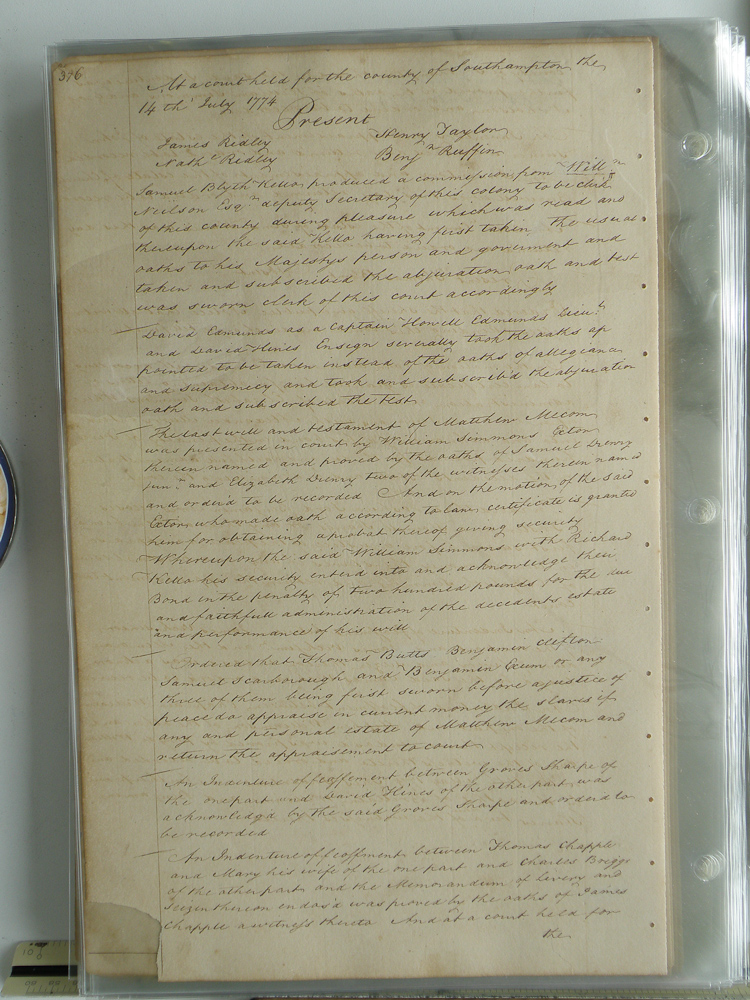 376
At a court held for the county of Southampton the
14th July 1774
Present
James Ridley Henry Taylor
Nathl Ridley Benjn Ruffin
Samuel Blyth Kello produced a commission from Willm
Neilson Esqr deputy Secretary of this colony to be clerk
of this county during pleasure which was read and
thereupon the said Kello having first taken the usual
oaths to his Majestys person and goverment and
taken and subscribed the abjuration oath and test
was sworn clerk of this court accordingly
David Edmunds as a Captain Howell Edmunds Lieut
and David Hines Ensign severally took the oaths ap
pointed to be taken instead of the oaths of allegiance
and supremecy and took and subscribd the abjuration
oath and subscribed the test
The last will and testament of Matthew Mecom
was presented in court by William Simmons Exctor
therein named and proved by the oaths of Samuel Drewry
junr and Elizabeth Drewry two of the witnesses therein named
and orderd to be recorded And on the motion of the said
Exctor who made oath according to law certificate is granted
him for obtaining a probat thereof giving security
Whereupon the said William Simmons with Richard
Kello his security enterd into and acknowledge their
Bond in the penalty of two hundred pounds for the due
and faithfull administration of the decedents estate
and performance of his will
Ordered that Thomas Butts Benjamin Clifton
Samuel Scarborough and Benjamin or any
three of them being first sworn before a justice of
peace do appraise in current money the slaves if
any and personal estate of Matthew Mecom and
return the appraisement to court
An Indenture of feoffement between Groves Sharpe of
the one part and David Hines of the other part was
acknowledgd by the said Groves Sharpe and orderd to
be recorded
An Indenture of feoffment between Thomas Chapple
and Mary his wife of the one part and Charles Briggs
of the other part and the Memorandum of Livery and
Seizen thereon endos'd was proved by the oaths of James
Chapple a witness thereto And at a court held for
the